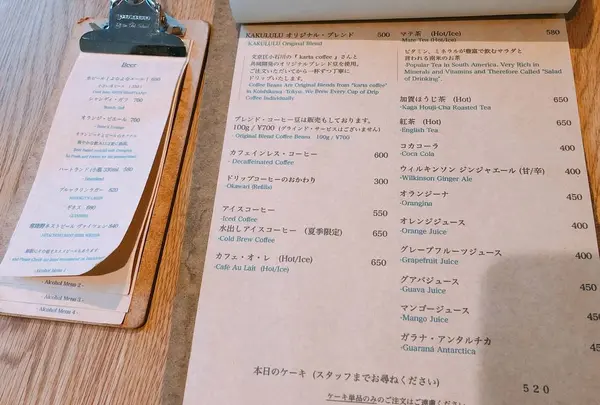 Beer
オリジン・ビール 760
アルコリックラガー 820
- Alcohol Menu 1 -
- Alcohol Menu 2 -
- Alcohol Menu 3 -
- Alcohol Menu 4 -
KAKULULU オリジナル・ブレンド 500
KAKULULU Original Blend
文京区小石川の『 karta coffee 』さんと
共同開発のオリジナルブレンド豆を使用。
ご注文いただいてから一杯ずつ丁寧に
ドリップいたします。
Coffee Beans Are Original Blends from "karta coffee"
in Koishikawa-Tokyo. We Brew Every Cup of Drip
Coffee Individually
ブレンド・コーヒー豆は販売もしております。
100g / ¥700 (グラインド・サービスはございません)
- Original Blend Coffee Beans 100g / ¥700
カフェインレス・コーヒー 600
- Decaffeinated Coffee
ドリップコーヒーのおかわり 300
-Okawari (Refills)
アイスコーヒー 550
-Iced Coffee
水出しアイスコーヒー (夏季限定) 650
-Cold Brew Coffee
カフェ・オ・レ (Hot/Ice) 650
-Café Au Lait (Hot/Ice)
マテ茶 (Hot/Ice) 580
Mate Tea (Hot/Ice)
ビタミン、ミネラルが豊富で飲むサラダと
言われる南米のお茶
-Popular Tea in South America. Very Rich in
Minerals and Vitamins and Therefore Called "Salad
of Drinking".
加賀ほうじ茶 (Hot) 500
-Kaga Houji-Cha Roasted Tea
紅茶 (Hot) 500
-English Tea
コカコーラ 400
-Coca Cola
ウィルキンソン ジンジャエール (甘/辛) 400
-Wilkinson Ginger Ale
オランジーナ 450
-Orangina
オレンジジュース 400
-Orange Juice
グレープフルーツジュース 400
-Grapefruit Juice
グアバジュース 450
-Guava Juice
マンゴージュース 450
-Mango Juice
ガラナ・アンタルチカ 450
-Guaraná Antarctica
本日のケーキ (スタッフまでお尋ねください) 520
ケーキ単品のみのご注文はご遠慮ください